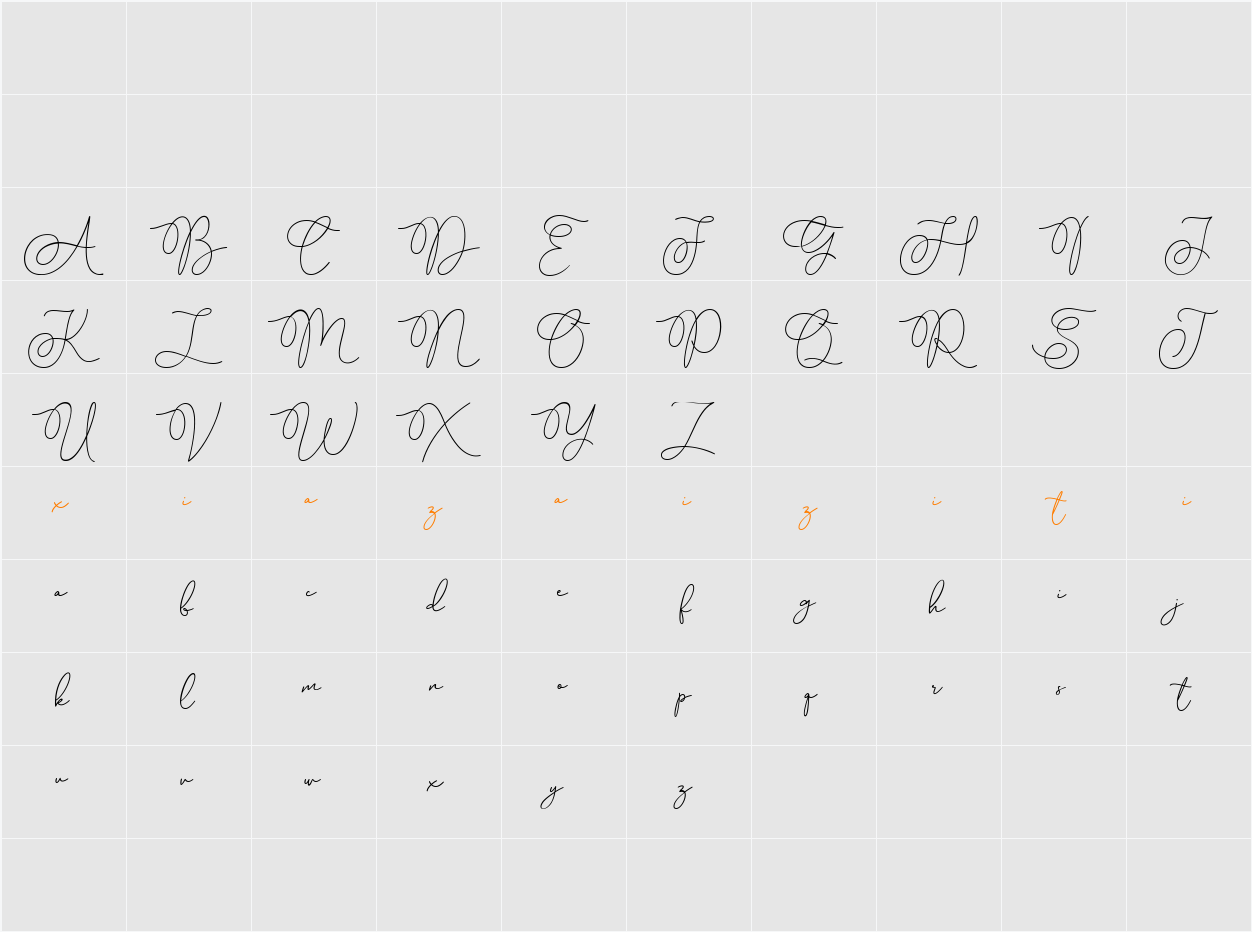 A B C D E F G H I J
K L M N O P Q R S T
U V W X Y Z
x i a z a i z i t i
a b c d e f g h i j
k l m n o p q r s t
u v w x y z